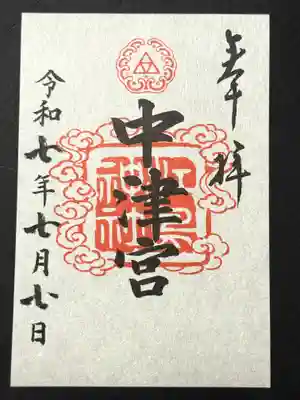 奉拝
中津宮
令和七年七月七日